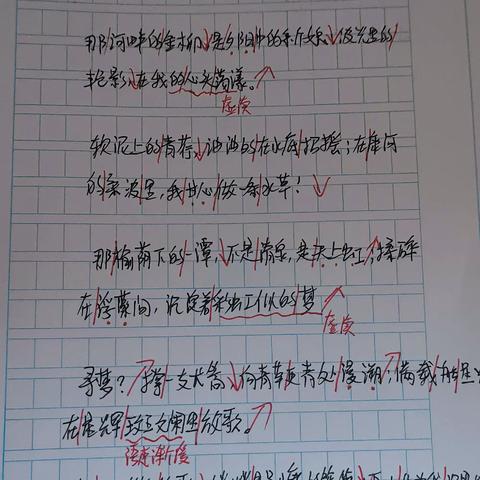 那河畔的金柳,是夕阳中的新娘,波光里的
艳影,在我的心头荡漾。
虚实
软泥上的青荇,油油的在水底招摇;在康河
的柔波里,我甘心做一条水草!
那榆荫下的一潭,不是清泉,是天上虹,揉碎
在浮藻间,沉淀着彩虹似的梦
虚实
寻梦?撑一支长篙,向青草更青处漫溯,满载一船星
在星辉斑斓里放歌。